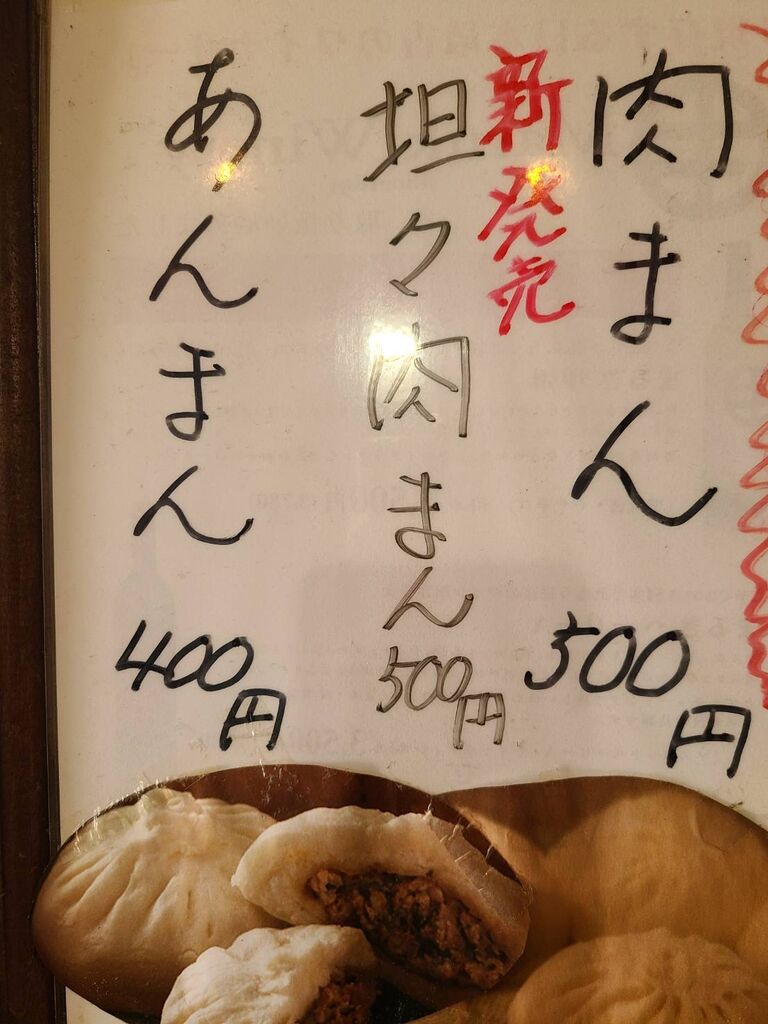 肉まん
500円
新発売
坦々肉まん
500円
あんまん
400円